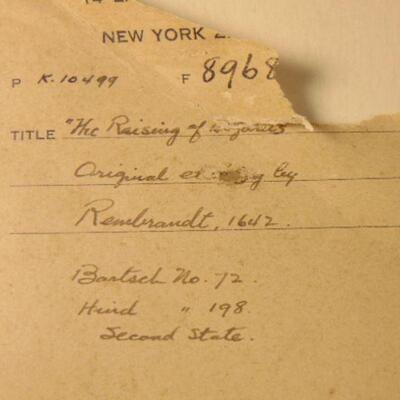 NEW YORK
P K.10499 F 8968
TITLE "The Raising of Lazarus
Original etching by
Rembrandt, 1642.
Bartsch No. 72.
Hind " 198.
Second State.